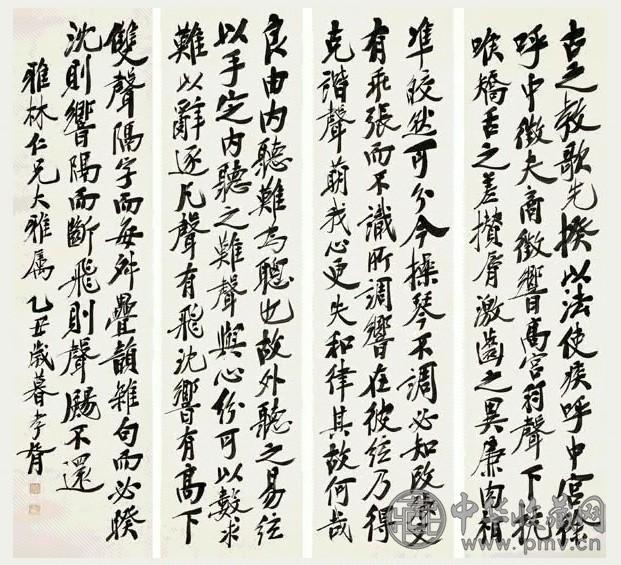 古之教歌先揆以法使疾呼中宮徐
呼中徵夫商徵響高宮羽聲下抗
喉矯舌之差攢脣激齒之異廉肉相
準皎然可分今操琴不調必知改章文
有乖張而不識所調響在彼絃乃得
克諧聲萌我心更失和律其故何哉
良由內聽難為聰也故外聽之易絃
以手定內聽之難聲與心紛可以數求
難以辭逐凡聲有飛沈響有高下
雙聲隔字而每舛疊韻雜句而必睽
沈則響隔而斷飛則聲颺不還
雅林仁兄大雅屬 乙丑歲暮 孝胥
中华收藏网
www.pmv.cn